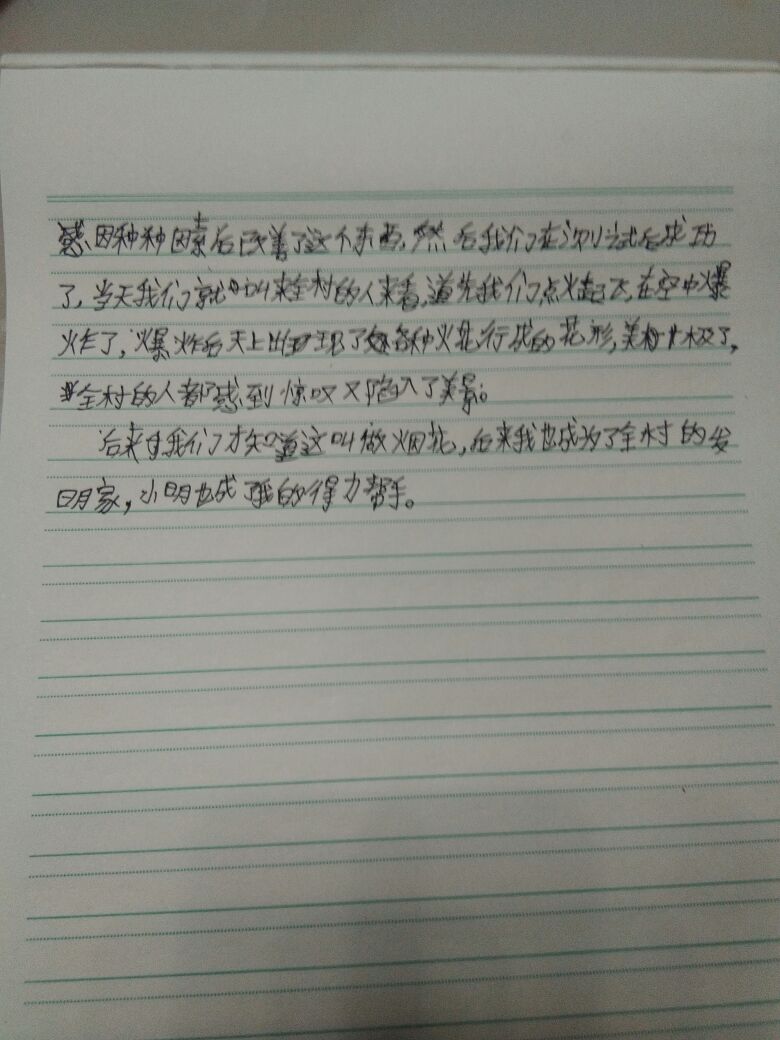 感,因种种因素后改善了这个东西,然后我们在次试后成功
了,当天我们就叫来全村的人来看,首先我们点火起飞,在空中爆
炸了,爆炸后天上出现了各种火花形状的花形,美极了,
全村的人都感到惊叹又陷入了美景。
后来我们才知道这叫做烟花,后来我也成为了全村的发
明家,小明也成了我的得力帮手。